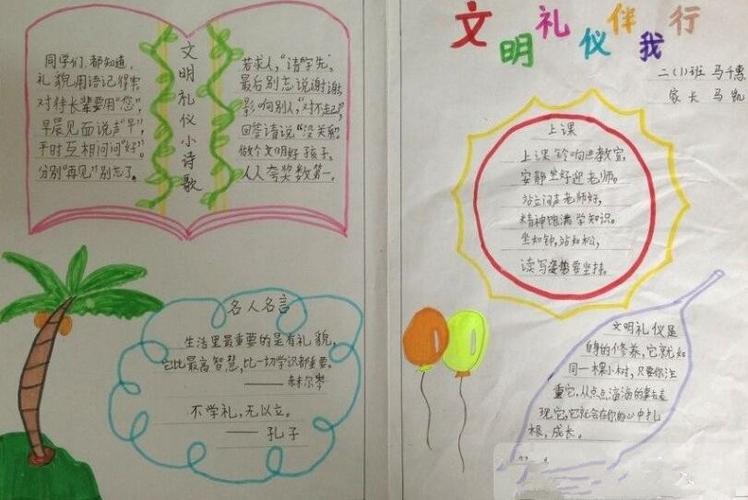 文明礼仪伴我行
二(1)班 马千惠
家长 马凯
文明礼仪小诗歌
同学们,都知道,
礼貌用语记得牢
对待长辈要用"您",
早晨见面说声"早",
平时互相问问"好"。
分别"再见"别忘了。
若求人,"请"字先,
最后别忘说谢谢,
影响别人,"对不起",
回答请说"没关系"。
做个文明好孩子。
人人夸奖数第一。
上课
上课铃响进教室,
安静坐好迎老师。
站立问声老师好,
精神饱满学知识。
坐如钟,站如松,
读写姿势要坚持。
名人名言
生活里最重要的是有礼貌,
它比最高智慧,比一切学识都重要。
——赫尔岑
不学礼,无以立。
——孔子
文明礼仪是
自身的修养,它就如
同一棵小树,只要你注
重它,从点点滴滴的事去表
现它,它就会在你的心中扎
根,成长。